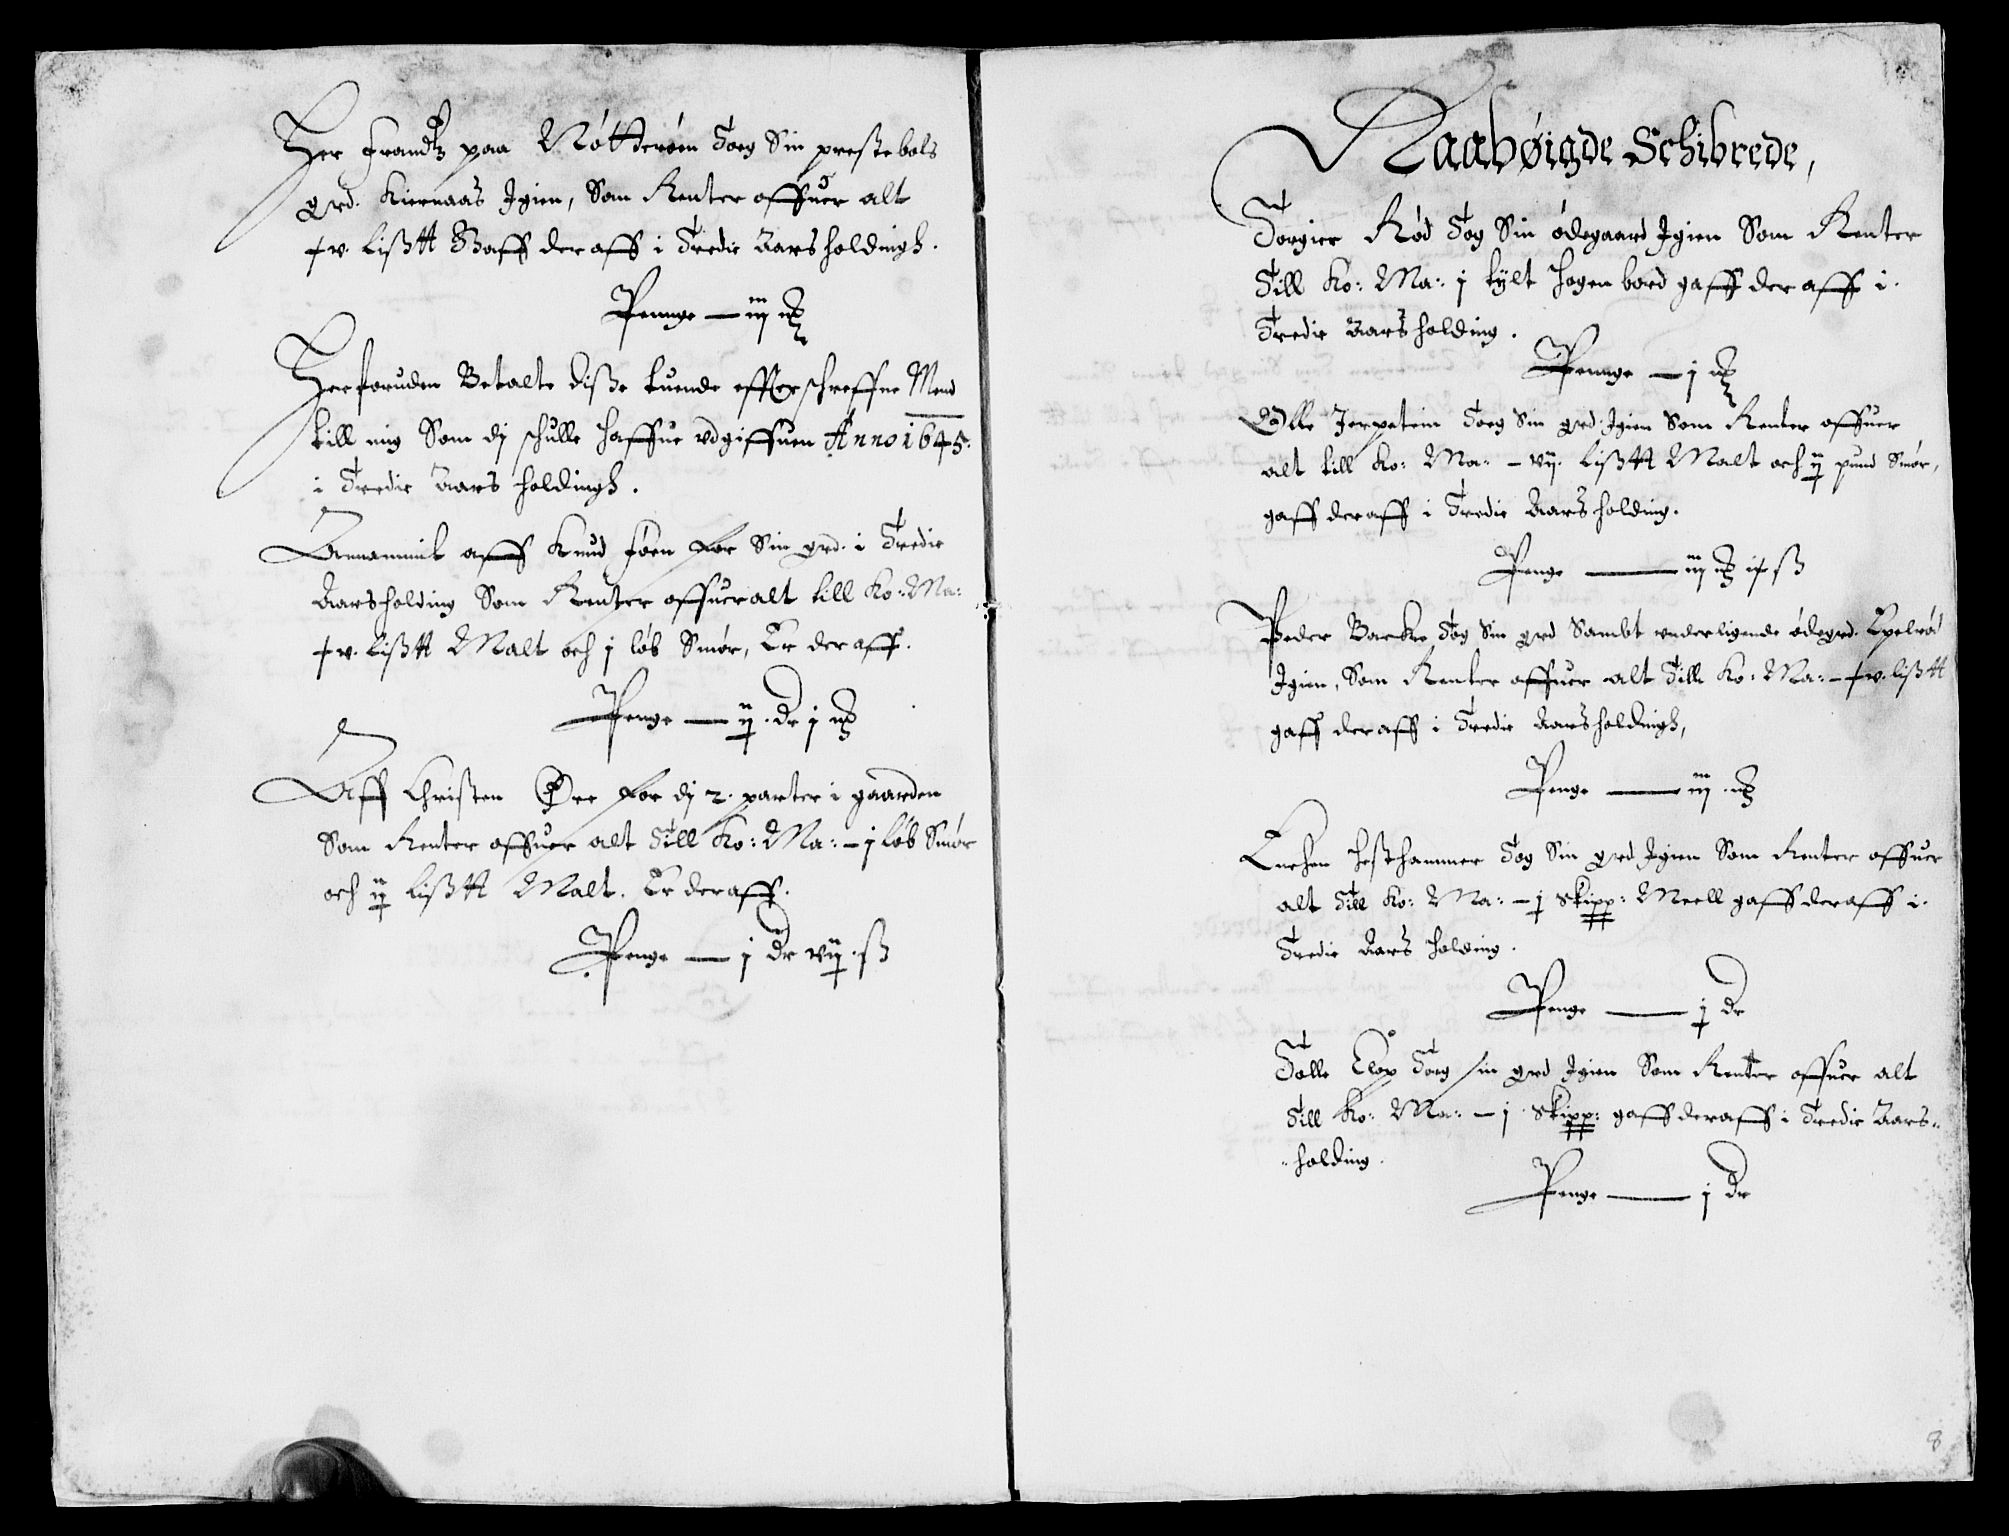 Her Frandtz paa Nøtterøen Toeg Sin prestebols
grd. Kiernaas Igien, Som Renter offuer alt
+v. lispd Gaff der aff i Tredie Aarsholdingh.
Penge — iij mk
Herforuden Betalte disse tuende effterschreffne Mend
till mig Som dj schulle haffue vdgiffuen Anno 1645.
i Tredie Aars holdingh.
Annammit aff Knud Føen for Sin grd. i Tredie
Aarsholding Som Renter offueralt till Ko: Ma:
+v. lispd Malt och j løb Smør, Er der aff.
Penge — ij. dr j mk
Aff Christen Øre for dj 2. parter i gaarden
Som Renter offuer alt Till Ko: Ma: – j løb Smør
och ij lispd Malt. Er der aff.
Penge — j dr vij. ß
Raabøigde Schibrede,
Torgier Rød Tog Sin ødegaard Igien Som Renter
Till Ko: Ma: j tylt hogen bord gaff der aff i.
Tredie Aarsholding.
Penge — j mk
Olle Jerpetein Toeg Sin grd. Igien Som Renter offuer
alt till Ko: Ma: – vij. lispd Malt och ij pund Smør,
gaff der aff i Tredie Aarsholding.
Penge — iij mk i+ ß
Peder Barkre Tog Sin grd Sambt underligende ødegrd. Epelrød
Igien, Som Renter offuer alt Till Ko: Ma: – +v. lispd
gaff der aff i Tredie Aarsholdingh,
Penge — iij. mk
Enchen Hesthammer Tog Sin grd Igien Som Renter offuer
alt Till Ko: Ma: – j Skipp: Meell gaff der aff i.
Tredie Aars holding.
Penge — j dr
Tolle Elop Toeg sin grd Igien Som Renter offuer alt
Till Ko: Ma: – j Skipp: gaff der aff i Tredie Aars-
holding.
Penge — j dr
8